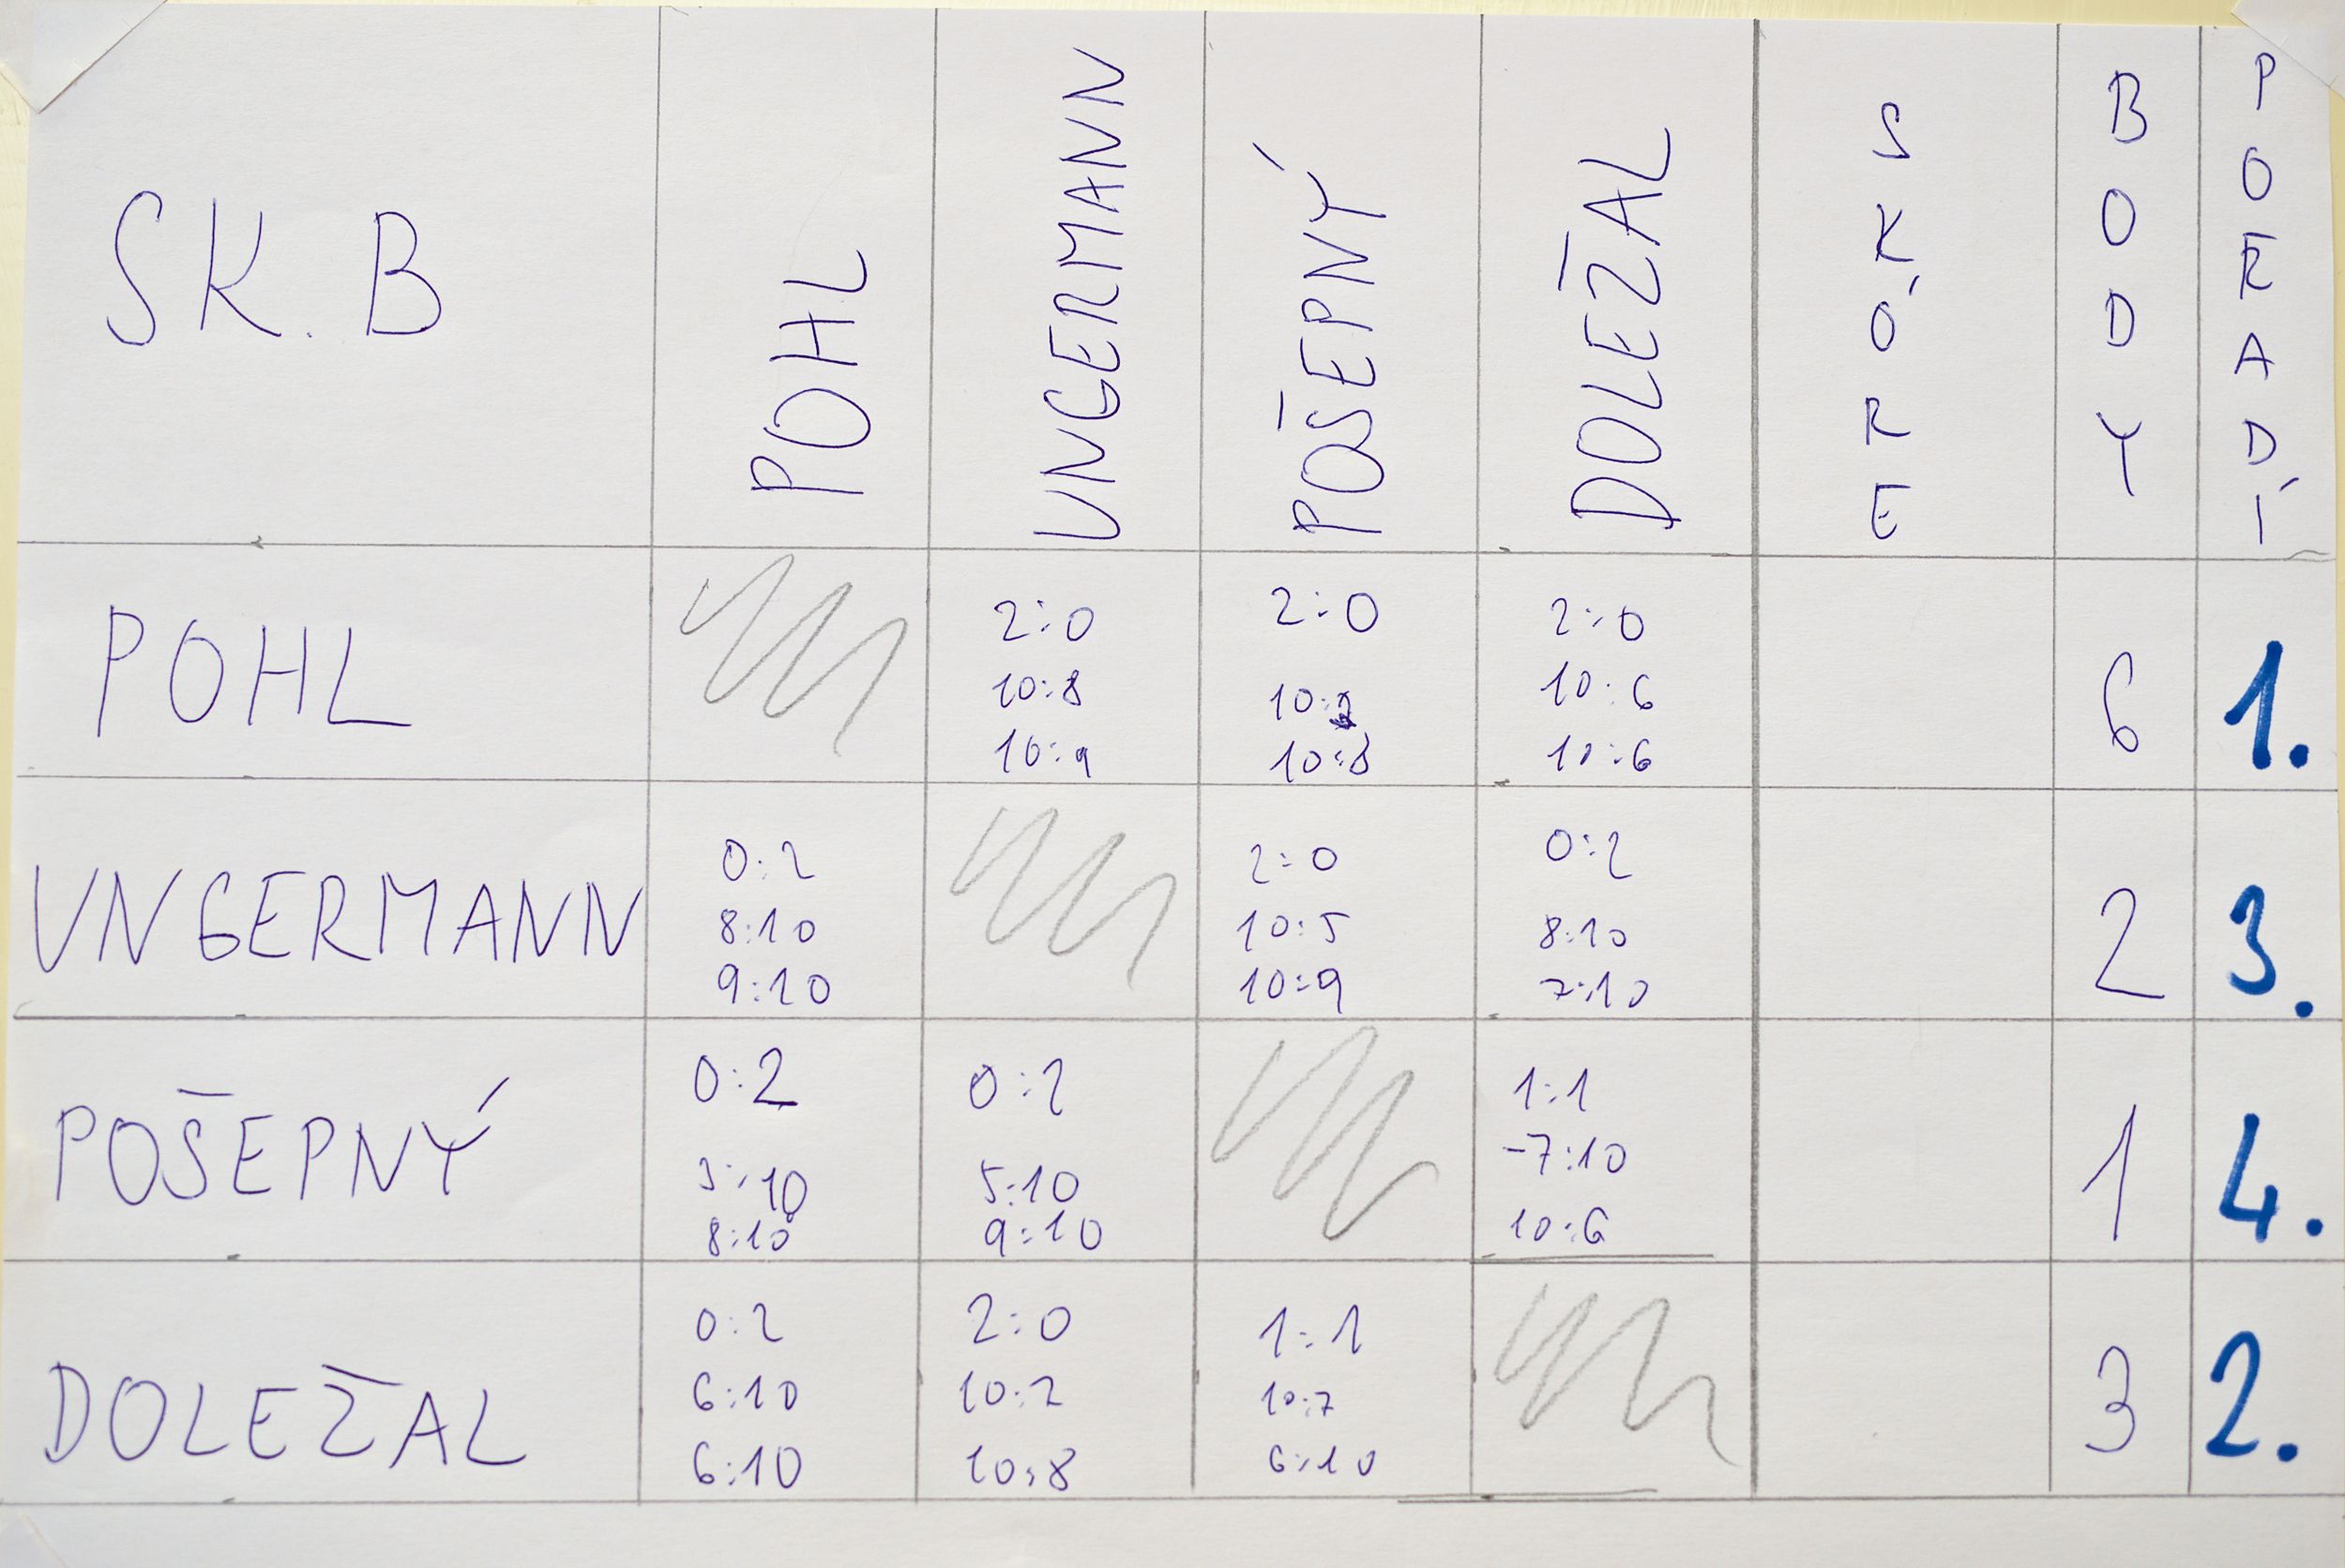 SK. B
POHL
UNGERMANN
POŠEPNÝ
DOLEŽAL
SKÓRE
BODY
POŘADÍ
POHL
2:0
10:8
10:9
2:0
10:8
2:0
10:6
10:6
6
1.
UNGERMANN
0:2
8:10
9:10
2:0
10:5
10:9
0:2
8:10
7:10
2
3.
POŠEPNÝ
0:2
8:10
0:2
5:10
9:10
1:1
-7:10
10:6
1
4.
DOLEŽAL
0:2
6:10
6:10
2:0
10:2
10:8
1:1
10:7
6:10
3
2.